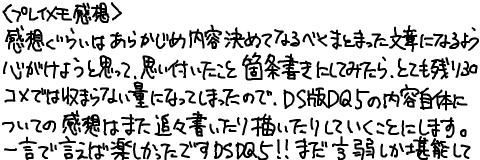 〈プレイメモ感想〉
感想ぐらいはあらかじめ内容決めてなるべくまとまった文章になるよう
心がけようと思って、思い付いたこと箇条書きにしてみたら、とても残り30
コメでは収まらない量になってしまったので、DS版DQ5の内容自体に
ついての感想はまた追々書いたり描いたりしていくことにします。
一言で言えば楽しかったですDSDQ5!!まだ言弱しか堪能して